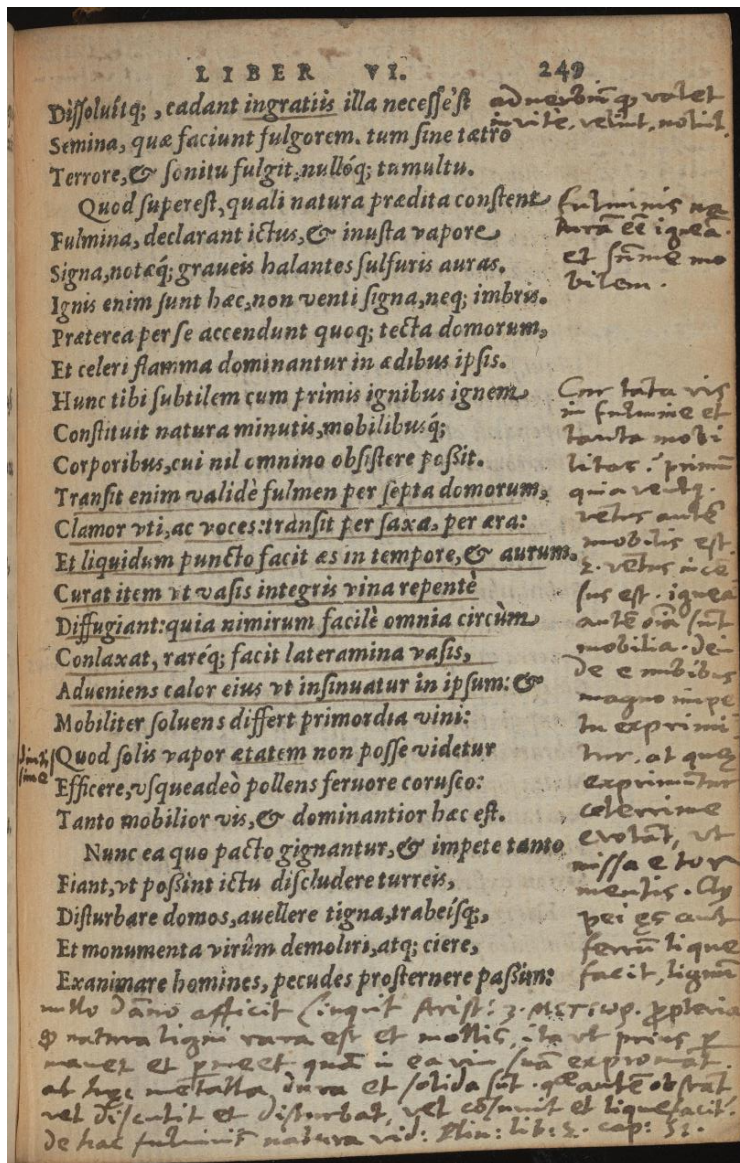 LIBER VI. 249
Dissoluítq;, cadant ingratiis illa necesse'st
Semina, quæ faciunt fulgorem. tum sine tætro
Terrore, & sonitu fulgit, nullóq; tumultu.
Quod superest, quali natura prædita constent
Fulmina, declarant ictus, & inusta vapore
Signa, notæq́; graueis halantes sulfuris auras.
Ignis enim sunt hæc, non venti signa, neq; imbris.
Præterea per se accendunt quoq; tecta domorum,
Et celeri flamma dominantur in ædibus ipsis.
Hunc tibi subtilem cum primis ignibus ignem
Constituit natura minutis, mobilibusq́;
Corporibus, cui nil omnino obsistere possit.
Transit enim validè fulmen per septa domorum,
Clamor vti, ac voces: transit per saxa, per æra:
Et liquidum puncto facit æs in tempore, & aurum.
Curat item vt vasis integris vina repentè
Diffugiant: quia nimirum facilè omnia circùm
Conlaxat, raréq; facit lateramina vasis,
Adueniens calor eius vt insinuatur in ipsum: &
Mobiliter soluens differt primordia vini:
Quod solis vapor ætatem non posse videtur
Efficere, vsqueadeò pollens feruore corusco:
Tanto mobilior vis, & dominantior hæc est.
Nunc ea quo pacto gignantur, & impete tanto
Fiant, vt possint ictu discludere turreis,
Disturbare domos, auellere tigna, trabeísq;,
Et monumenta virûm demoliri, atq; ciere,
Exanimare homines, pecudes prosternere passim:
aduerbiũ valet
inuitè. velint, nolint.
fulminis na
turã eẽ igneã.
et sũme mo
bilem.
Cur tãta vis
in fulmine et
tanta mobi
litas? primũ
quia
autẽ
mobilis est.
2. vẽtus incẽ
sus est. ignea
autẽ oĩa sũnt
mobilia. dein
de e nubibus
magno impe
tu exprimi
tur. at quæ
exprimũtur
celerrime
euolãt, vt
missa e tor
mentis. Cly
pei æs aut
ferrũ lique
facit, lignũ
nullo dãno afficit (inquit Arist: 3. Μετεωρ. ꝓpterea
natura ligni rara est et mollis, ita vt prius
et quã in ea vim suã expromat.
at metalla dura et solida sũt. autẽ obstãt
vel discutit et disturbat, vel cõsumit et liquefacit.
de hac fulminũ natura vid: Plin: lib: 2. cap: 51.